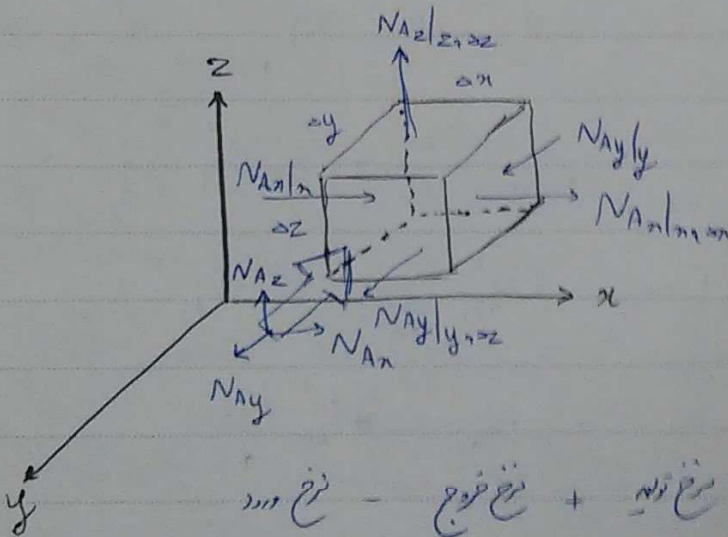 N_Az|z+Δz
z
Δx
Δy
N_Ay|y
N_Ax|x
N_Ax|x+Δx
Δz
N_Az
x
N_Ay|y+Δz
N_Ax
N_Ay
y
نرخ ورود - نرخ خروج + نرخ تولید